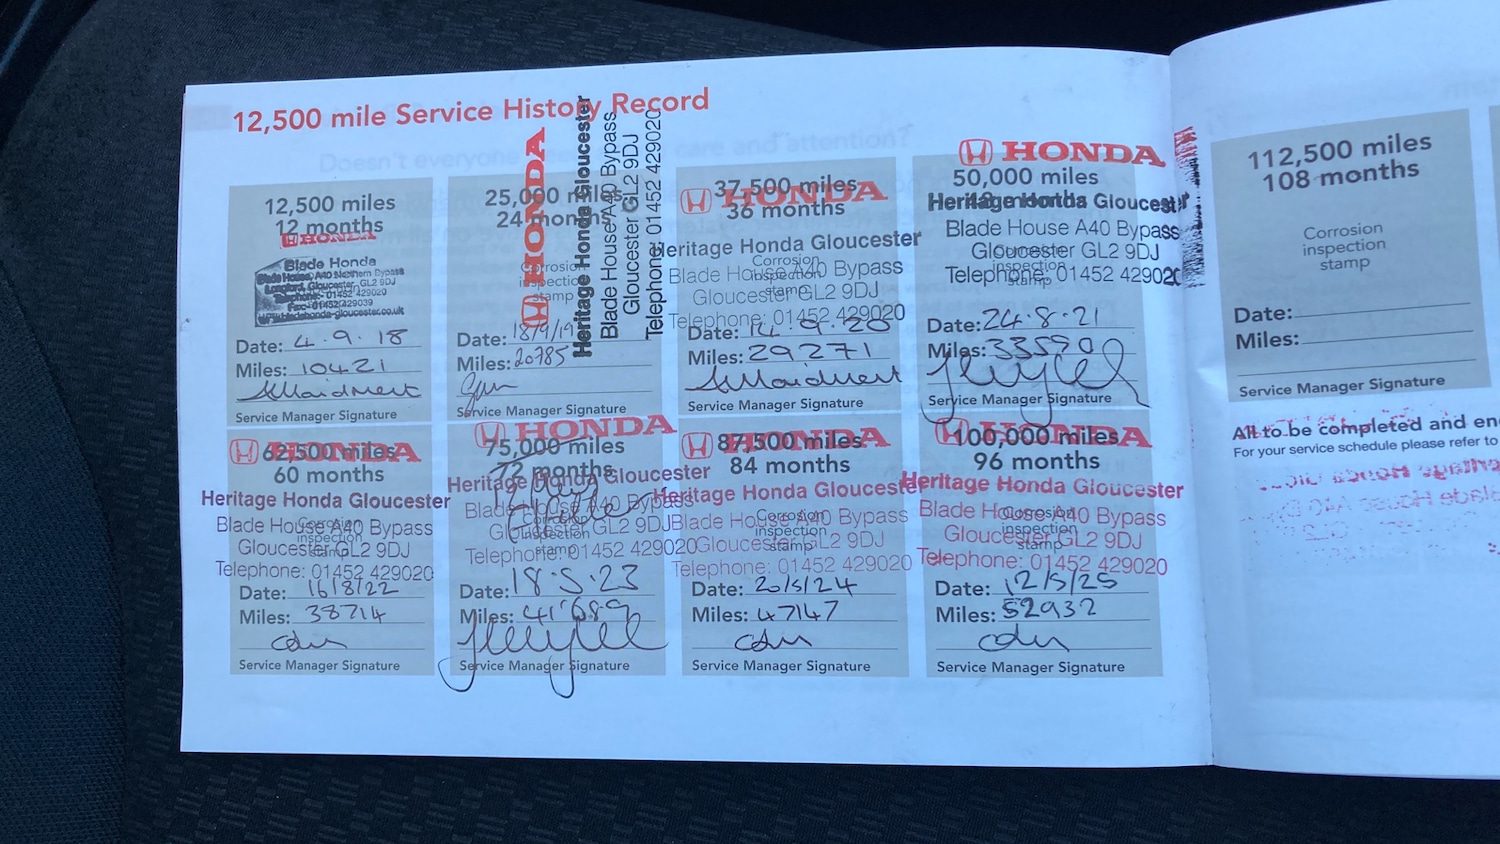 12,500 mile Service History Record
12,500 miles
12 months
HONDA
Blade Honda
Blade House, A40 Northern Bypass
Longford, Gloucester, GL2 9DJ
Telephone:- 01452 429020
Fax:- 01452 429039
Date: 4.9.18
Miles: 10421
Service Manager Signature
25,000 miles
24 months
Corrosion
inspection
stamp
HONDA
Heritage Honda Gloucester
Blade House A40 Bypass
Gloucester GL2 9DJ
Telephone 01452 429020
Date: 18/9/19
Miles: 20785
Service Manager Signature
37,500 miles
36 months
HONDA
Heritage Honda Gloucester
Corrosion
inspection
stamp
Blade House A40 Bypass
Gloucester GL2 9DJ
Telephone: 01452 429020
Date: 14.9.20
Miles: 29271
Service Manager Signature
HONDA
50,000 miles
48 months
Heritage Honda Gloucester
Blade House A40 Bypass
Gloucester GL2 9DJ
Corrosion
inspection
stamp
Telephone: 01452 429020
Date: 24.8.21
Miles: 33590
Service Manager Signature
62,500 miles
60 months
HONDA
Heritage Honda Gloucester
Corrosion
inspection
stamp
Blade House A40 Bypass
Gloucester GL2 9DJ
Telephone: 01452 429020
Date: 16/8/22
Miles: 38714
Service Manager Signature
HONDA
75,000 miles
72 months
Heritage Honda Gloucester
Blade House A40 Bypass
Gloucester GL2 9DJ
Corrosion
inspection
stamp
Telephone: 01452 429020
Date: 18.5.23
Miles: 41'689
Service Manager Signature
HONDA
87,500 miles
84 months
Heritage Honda Gloucester
Blade House A40 Bypass
Gloucester GL2 9DJ
Corrosion
inspection
stamp
Telephone: 01452 429020
Date: 20/5/24
Miles: 47147
Service Manager Signature
HONDA
100,000 miles
96 months
Heritage Honda Gloucester
Blade House A40 Bypass
Gloucester GL2 9DJ
Corrosion
inspection
stamp
Telephone: 01452 429020
Date: 12/5/25
Miles: 52932
Service Manager Signature
112,500 miles
108 months
Corrosion
inspection
stamp
Date:
Miles:
Service Manager Signature
All to be completed and
For your service schedule please refer to